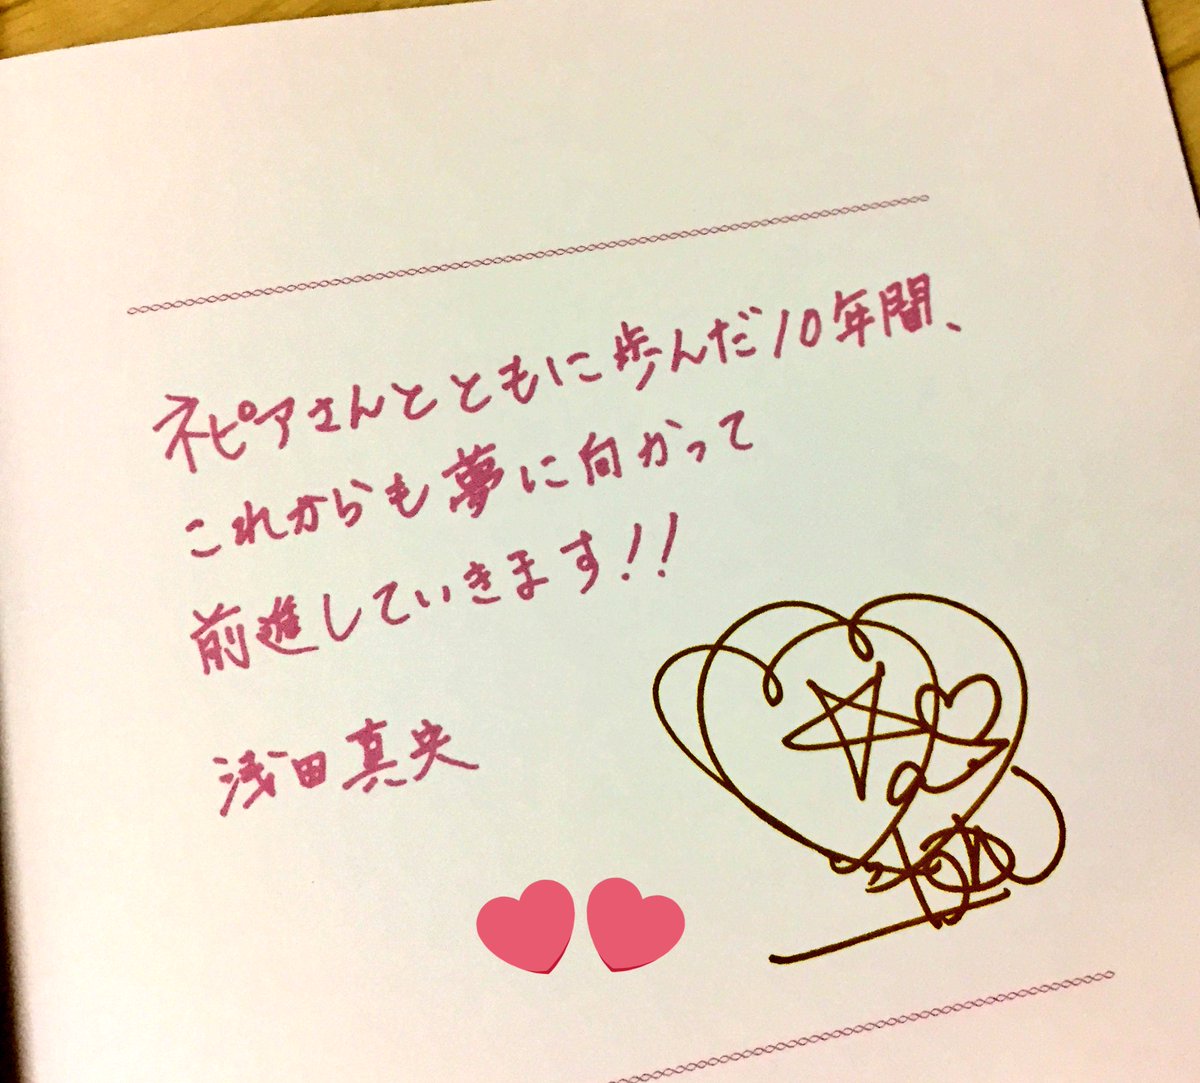 ネピアさんとともに歩んだ10年間、
これからも夢に向かって
前進していきます!!
浅田真央